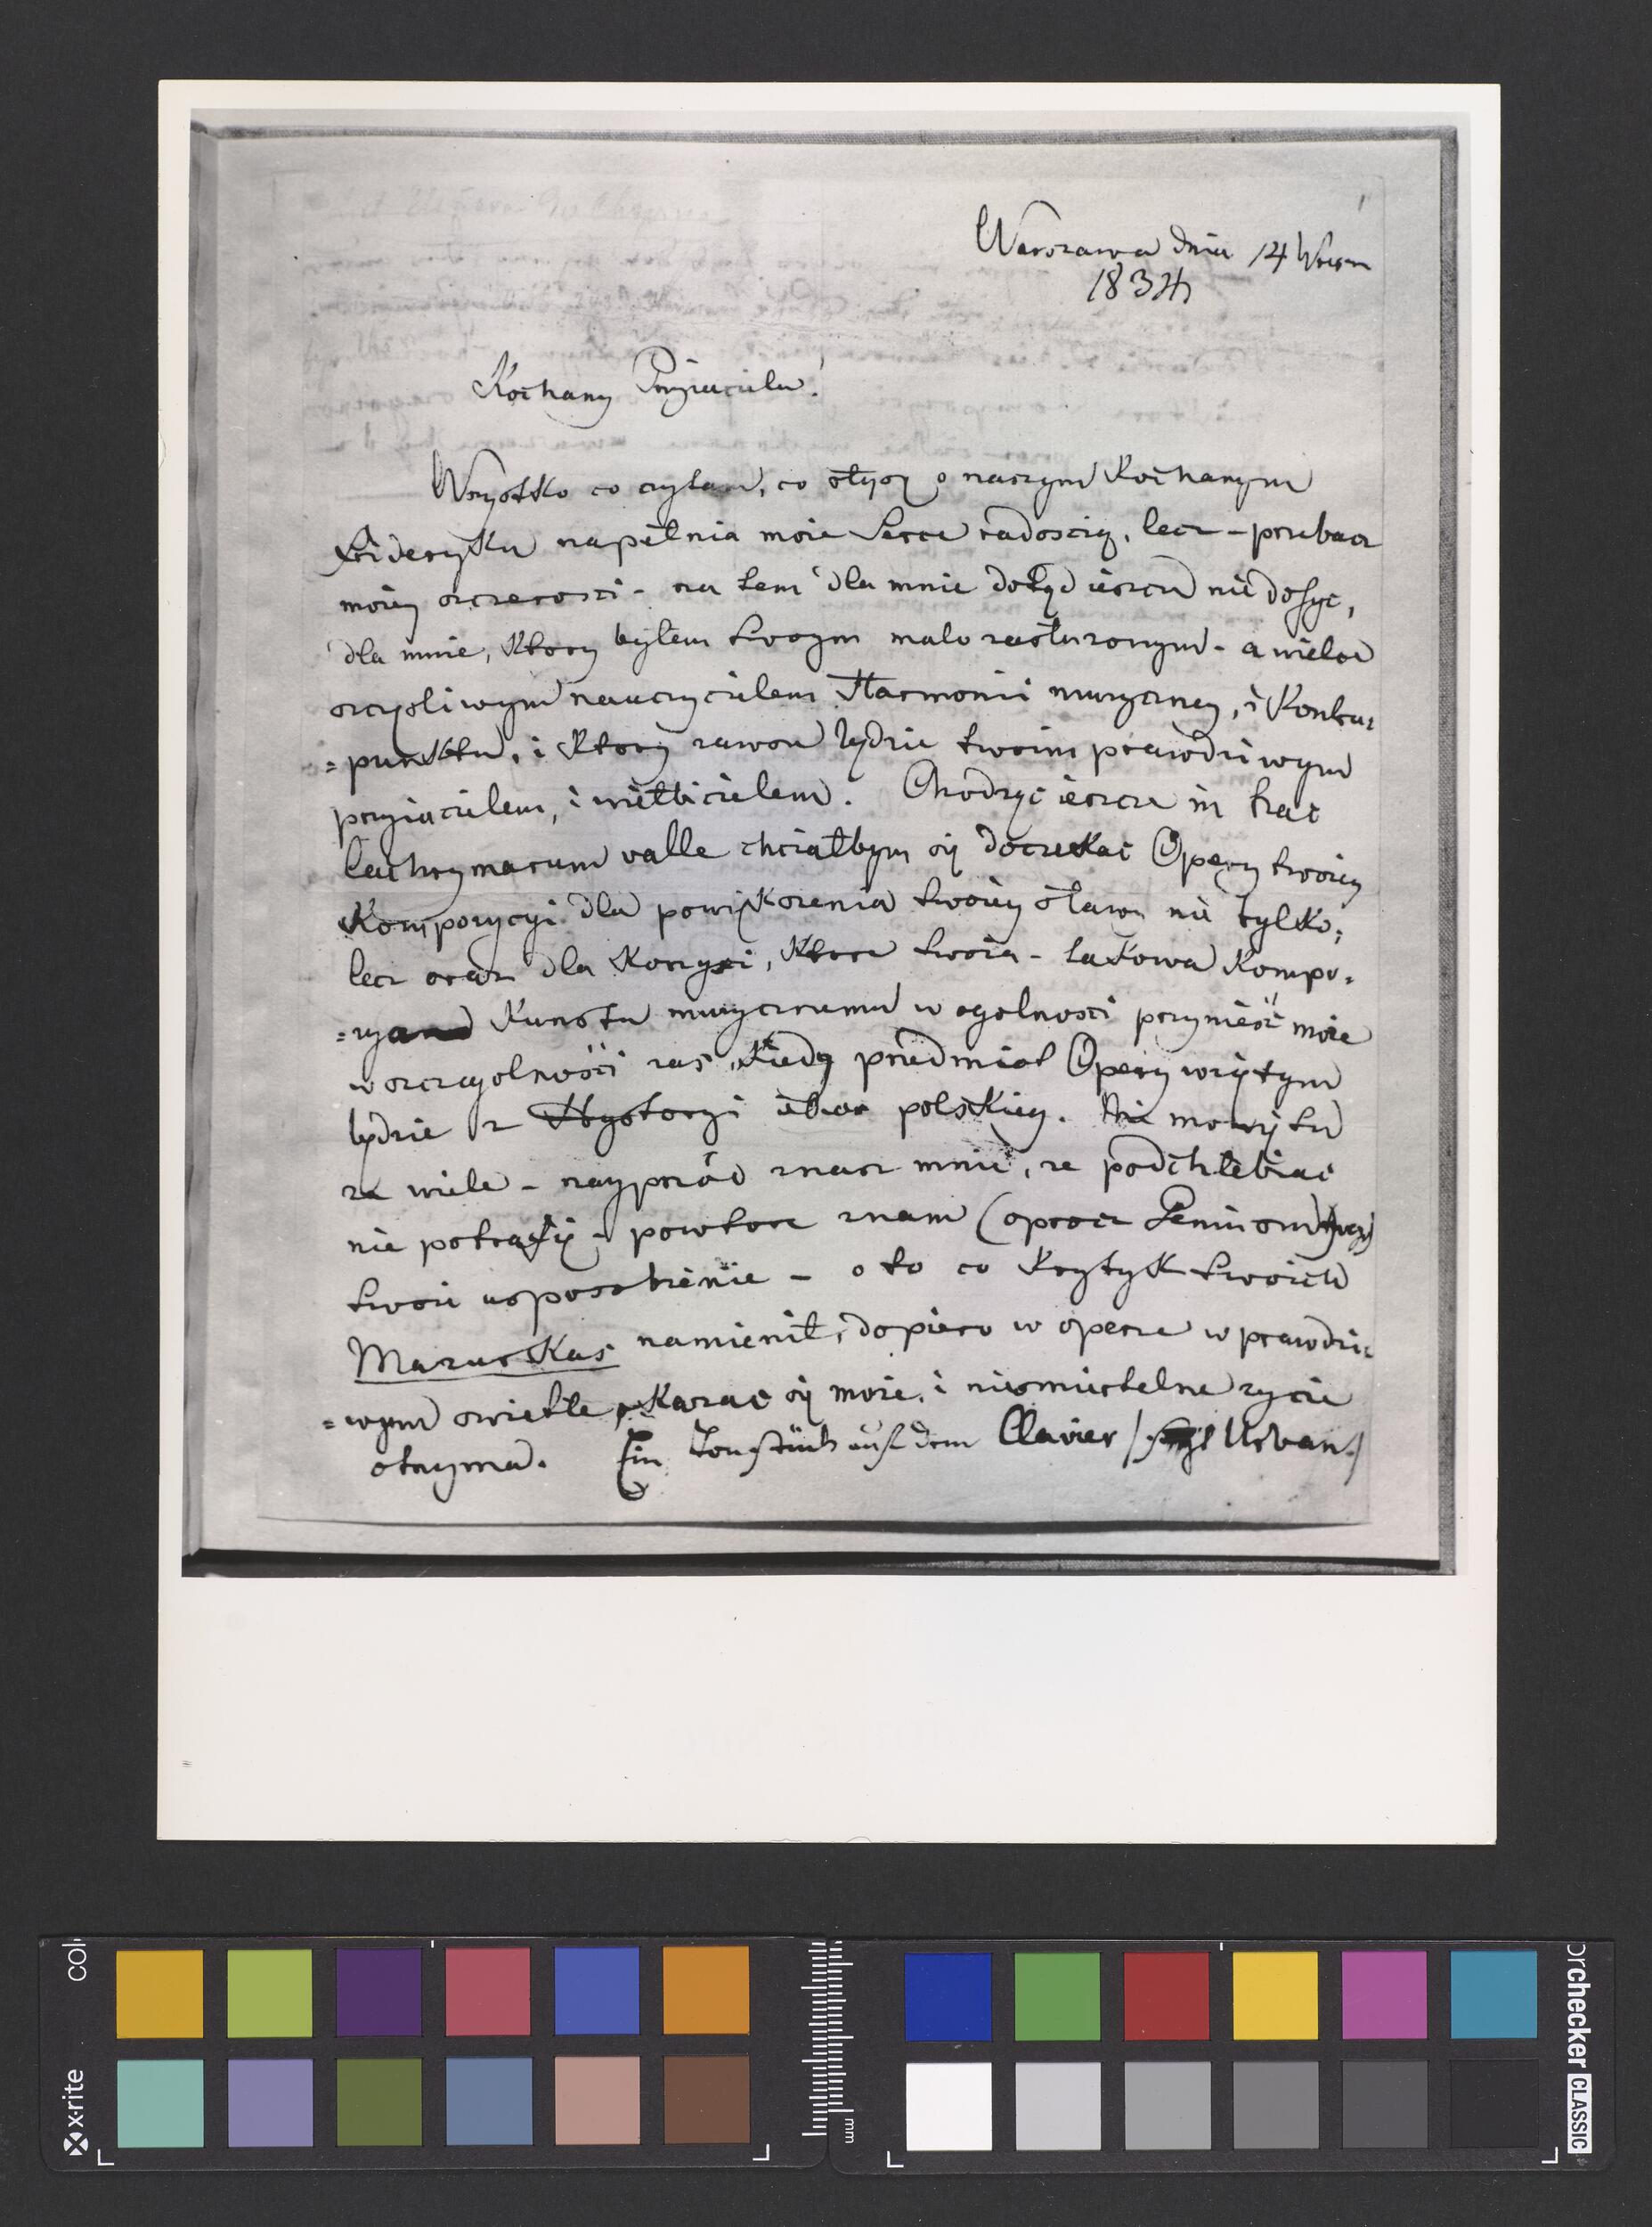 Warszawa dnia 14 Wrześn
1834
Kochany Przyjacielu!
Wszystko co czytam, co słyszę o naszym Kochanym
Frideryku napełnia moie Serce radością, lecz - przebacz
moiey szczerości - na tem dla mnie dotąd ieszcze nie dosyć,
dla mnie, który byłem twoym mało zasłużonym - a wiele
szczęśliwym nauczycielem Harmonii muzyczney, i Kontra=
=punktu, i który zawsze będzie twoim prawdziwym
przyiacielem, i wielbicielem. Chodząc ieszcze in hac
lachrymarum valle chciałbym się doczekać Opery twoiey
Kompozycyi dla powiększenia twoiey sławy nie tylko,
lecz oraz dla Korzyści, które twoia - takowa Kompo=
=zya Kunsztu muzycznemu w ogolności przynieść może
w szczególności zaś, kiedy przedmiot Opery wziętym
będzie z Hystoryi polskiey. Nie mowię tu
za wiele - nayprzód znasz mnie, że podchlebiać
nie potrafię - powtore znam (oprocz Geniuszu twego)
twoie usposobienie - o to co Krytyk twoich
Mazurkas namienił, dopiero w operze w prawdzi=
=wym świetle okazać się może, i nieśmiertelne życie
otrzyma. Ein Tonstück auf dem Clavier / sagt Urban /